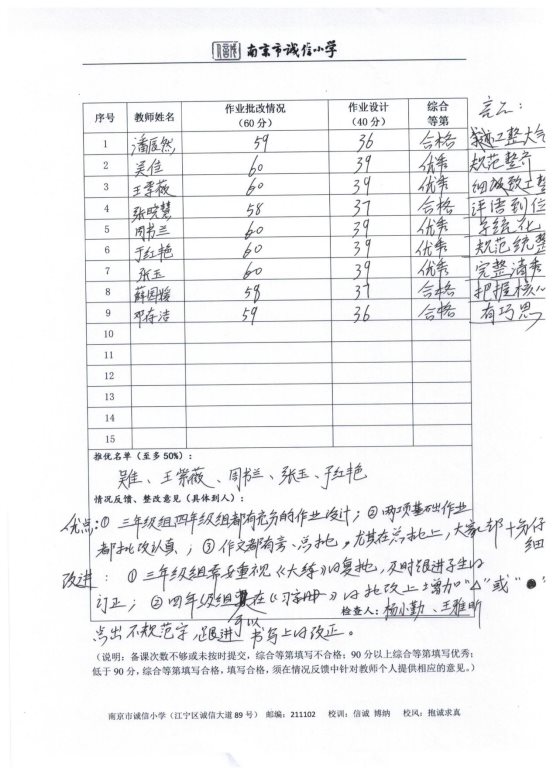 南京市诚信小学
序号 教师姓名 作业批改情况（60 分） 作业设计（40 分） 综合等第 亮点：
1 潘辰然 59 36 合格 工整大气
2 吴佳 60 39 优秀 规范整齐
3 王紫薇 60 39 优秀 细致工整
4 张晓慧 58 37 合格 评语到位
5 周书兰 60 39 优秀
6 于红艳 60 39 优秀 规范统整
7 张玉 60 39 优秀 完整清秀
8 薛国媛 58 37 合格 把握核心
9 邓存洁 59 36 合格 有巧思
10
11
12
13
14
15
推优名单（至多 50%）：
吴佳、王紫薇、周书兰、张玉、于红艳
情况反馈、整改意见（具体到人）：
优点：① 三年级组四年级组都有充分的作业设计；② 两项基础作业
都批改认真；③ 作文都有旁、总批，尤其在总批上，大家都十分仔细
改进：① 三年级组需要重视《大练》的复批，及时跟进学生的
订正；② 四年级组可以在《习字册》的批改上增加“△”或“●”
检查人：杨小勤、王雅昕
点出不规范字，跟进书写上的改正。
（说明：备课次数不够或未按时提交，综合等第填写不合格；90 分以上综合等第填写优秀；
低于 90 分，综合等第填写合格，填写合格，须在情况反馈中针对教师个人提供相应的意见。）
南京市诚信小学（江宁区诚信大道 89 号） 邮编：211102 校训：信诚 博纳 校风：抱诚求真